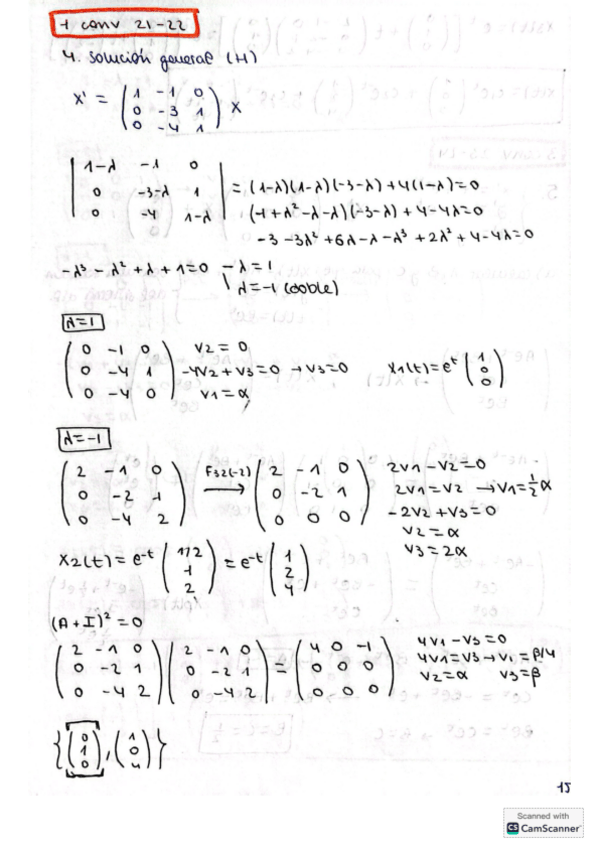 1 conv 21-22
4. Solución general (H)
X' = ( 1 -1 0 / 0 -3 1 / 0 -4 1 ) X
| 1-λ -1 0 / 0 -3-λ 1 / 0 -4 1-λ | = (1-λ)(1-λ)(-3-λ)+4(1-λ)=0
(+1+λ²-λ-λ)(-3-λ)+4-4λ=0
-3-3λ²+6λ-λ-λ³+2λ²+4-4λ=0
-λ³-λ²+λ+1=0
λ=1
λ=-1 (doble)
λ=1
( 0 -1 0 / 0 -4 1 / 0 -4 0 )
v2=0
-4v2+v3=0 → v3=0
v1=α
X1(t)=e^t ( 1 / 0 / 0 )
λ=-1
( 2 -1 0 / 0 -2 1 / 0 -4 2 ) F32(-2) → ( 2 -1 0 / 0 -2 1 / 0 0 0 )
2v1-v2=0
2v1=v2 → v1=1/2α
-2v2+v3=0
v2=α
v3=2α
X2(t)=e^-t ( 1/2 / 1 / 2 ) = e^-t ( 1 / 2 / 4 )
(A+I)²=0
( 2 -1 0 / 0 -2 1 / 0 -4 2 ) ( 2 -1 0 / 0 -2 1 / 0 -4 2 ) = ( 4 0 -1 / 0 0 0 / 0 0 0 )
4v1-v3=0
4v1=v3 → v1=β/4
v2=α v3=β
{ ( 0 / 1 / 0 ), ( 1 / 0 / 4 ) }
15
Scanned with
CS CamScanner